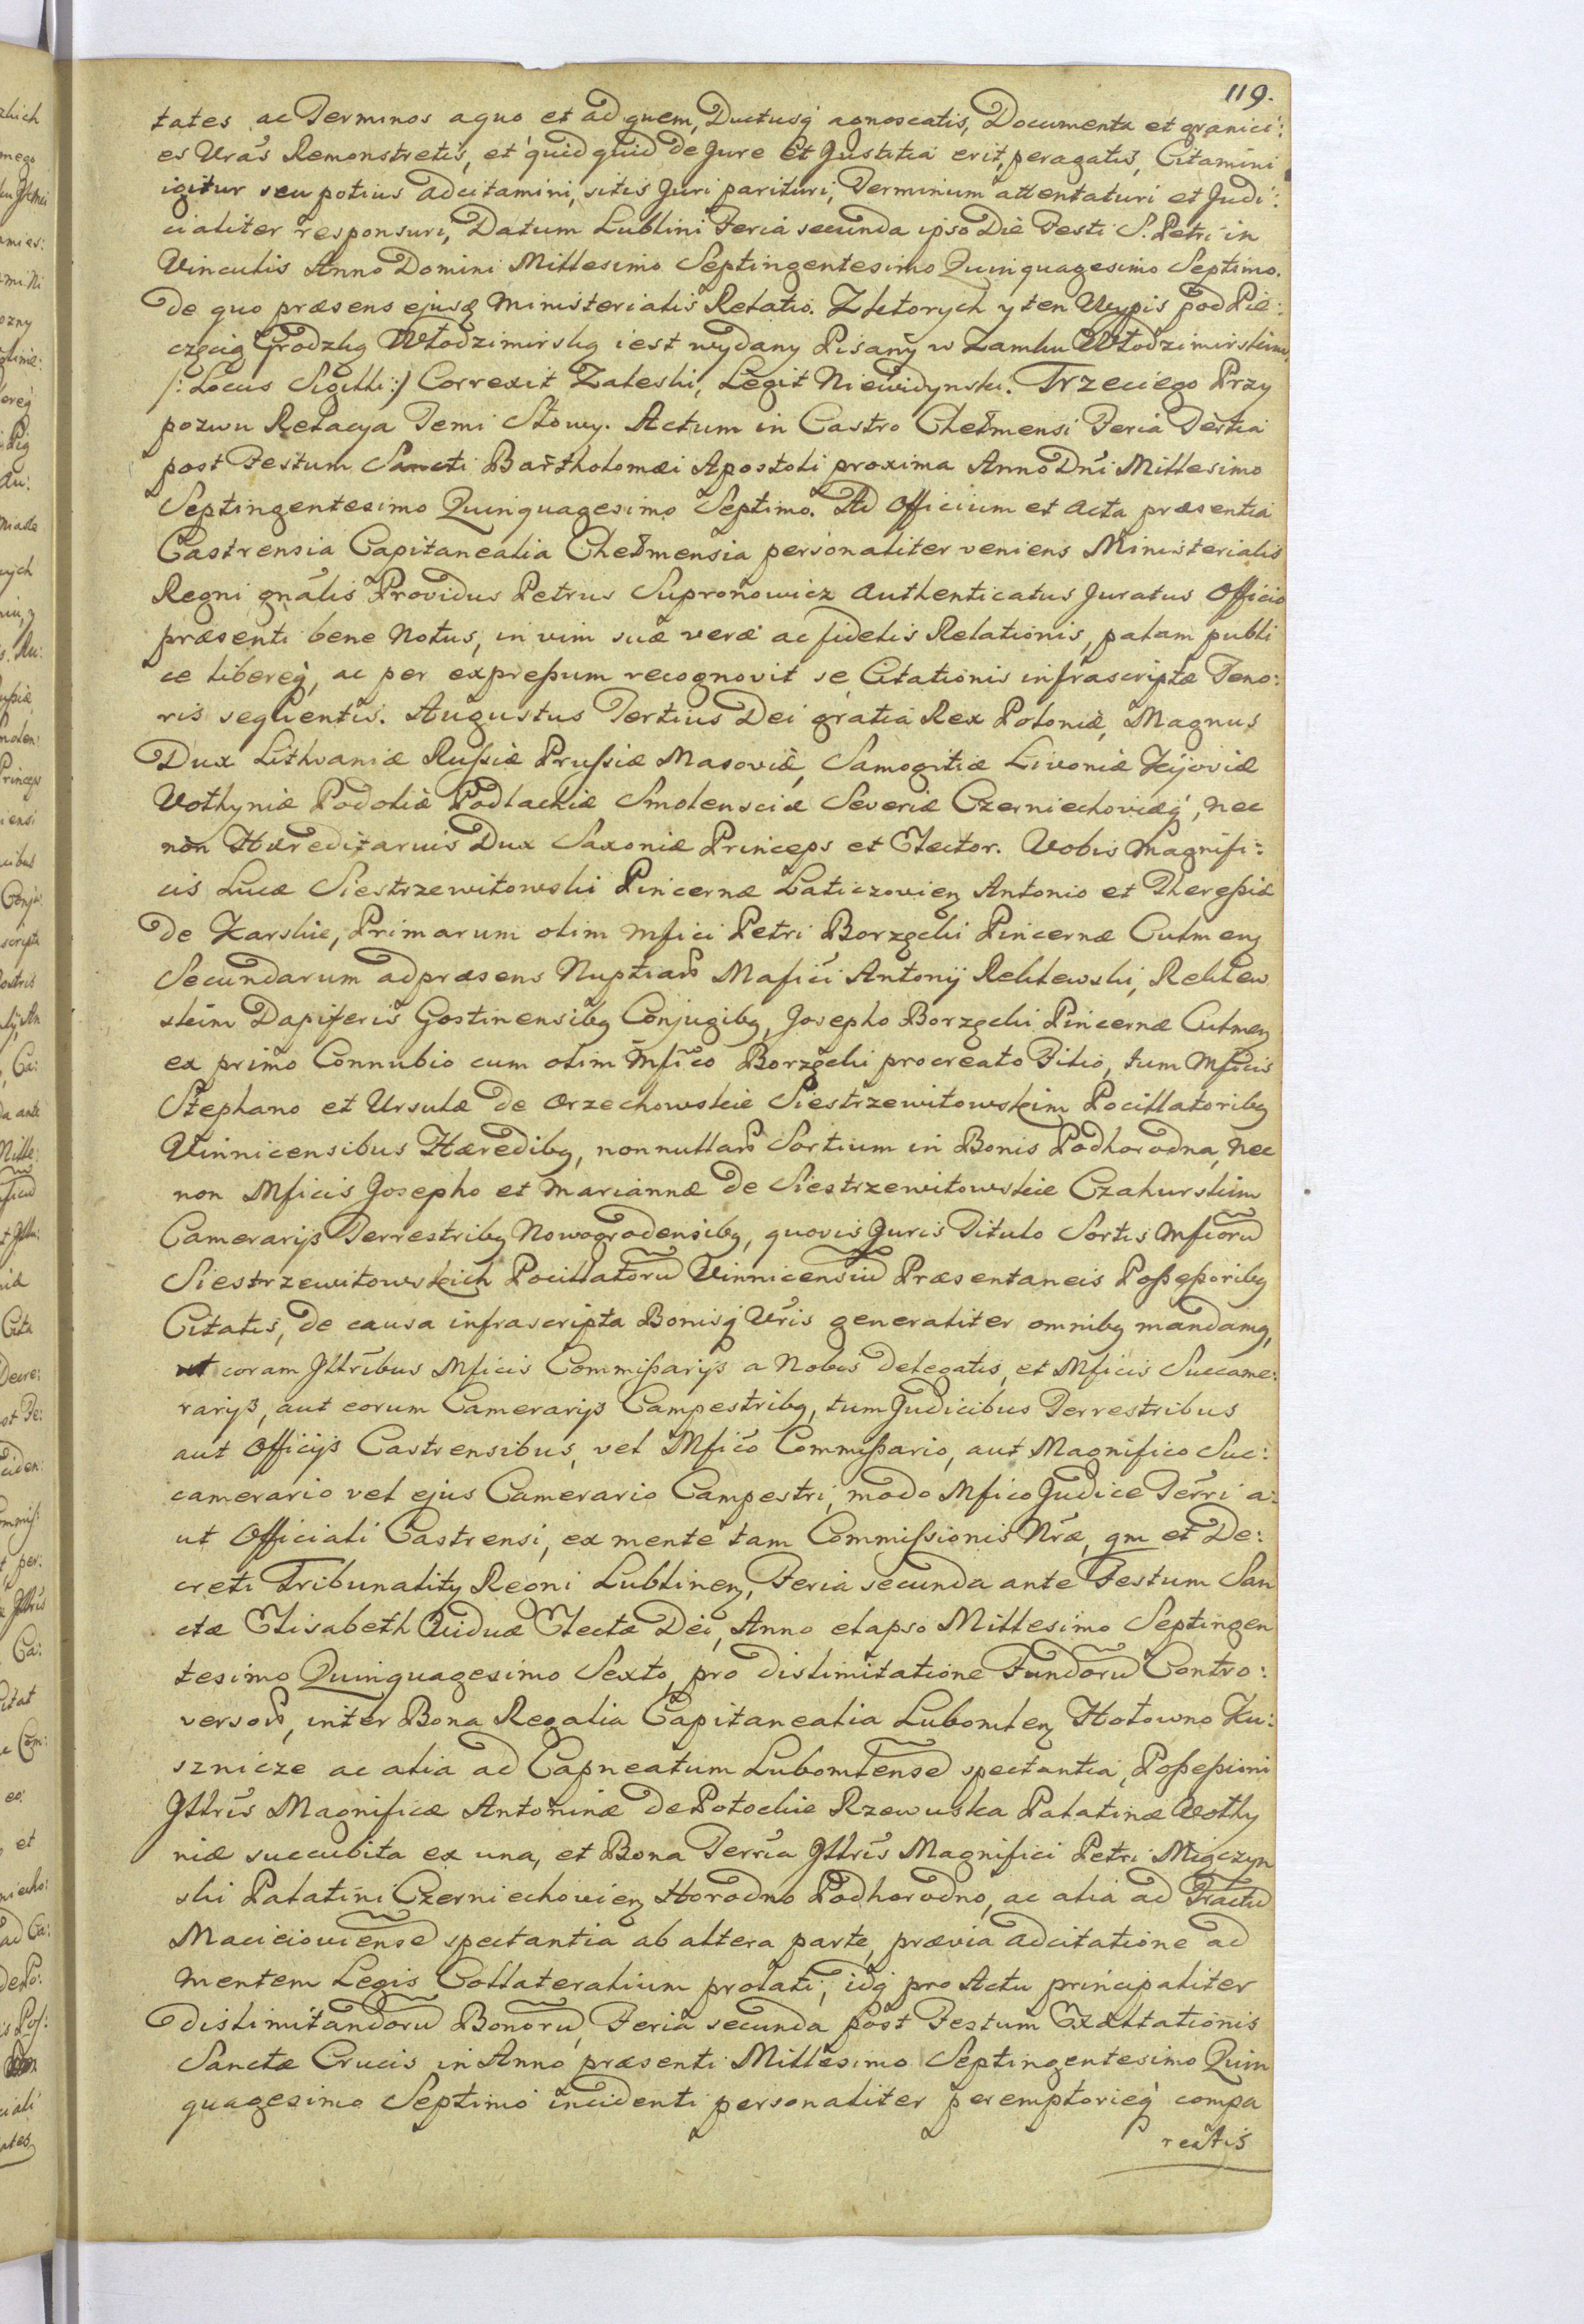 119.
tates ac Terminos aquo et ad quem, Ductusq́ agnoscatis, Documenta et granici:
es Vr̃as Remonstretis, et quidquid de Jure et Justitia erit, peragatis, Citamini
igitur seu potius adcitamini, sitis Juri parituri, Terminum attentaturi et Judi:
cialiter responsuri, Datum Lublini Feria secunda ipso Die Festi S. Petri in
Vinculis Anno Domini Millesimo Septingentesimo Quinquagesimo Septimo.
de quo præsens ejusq́ Ministerialis Relatio. Z ktorych y ten Wypis pod Pie:
częcią Grodzką Włodzimirską iest wydany Pisany w Zamku Włodzimirskim
/: Locus Sigilli :/ Correxit Zaleski, Legit Niewidynski. Trzeciego Przy
pozwu Relacya Temi Słowy. Actum in Castro Chełmensi Feria Tertia
post Festum Sancti Bartholomæi Apostoli proxima Anno Dn̄i Millesimo
Septingentesimo Quinquagesimo Septimo. Ad Officium et acta præsentia
Castrensia Capitanealia Chełmensia personaliter veniens Ministerialis
Regni gn̄alis Providus Petrus Supronowicz authenticatus Juratus Officio
præsenti bene Notus, in vim suæ veræ ac fidelis Relationis, palam publi
ce libereq́, ac per expreßum recognovit se Citationis infrascriptæ Teno:
ris sequentis. Augustus Tertius Dei gratia Rex Poloniæ, Magnus
Dux Lithvaniæ Rußiæ Prußiæ Masoviæ, Samogitiæ Livoniæ Kijoviæ
Volhyniæ Podoliæ Podlachiæ Smolensciæ Severiæ Czerniechoviæq́, nec
non Hæreditarius Dux Saxoniæ Princeps et Elector. Vobis Magnifi:
cis Lucæ Siestrzewitowski Pincernæ Laticzovieŋ Antonio et Thereßiæ
de Karskie, Primarum olim Mfici Petri Borzęcki Pincernæ Culmeŋ
Secundarum adpræsens Nuptiaꝝ Mafici Antonij Reklewski, Reklew
skim Dapiferis Gostinensibꝫ Conjugibꝫ, Josepho Borzęcki Pincernæ Culmeŋ
ex primo Connubio cum olim Mfico Borzęcki procreato Filio, tum Mficis
Stephano et Ursulæ de Orzechowskie Siestrzewitowskim Pocillatoribꝫ
Vinnicensibus Hæredibꝫ, nonnullaꝝ Sortium in Bonis Podhorodna, nec
non Mficis Josepho et Mariannæ de Siestrzewitowskie Czahurskim
Camerarijs Terrestribꝫ Nowogrodensibꝫ, quovis Juris Titulo Sortis Mficorũ
Siestrzewitowskich Pocillatorũ Vinnicensiũ Præsentaneis Poßeßoribꝫ
Citatis, de causa infrascripta Bonisq́ Vr̃is generaliter omnibꝫ mandamꝫ,
ut coram Jllr̃ibus Mficis Commißarijs a Nobis Delegatis, et Mficis Succame:
rarijs, aut eorum Camerarijs Campestribꝫ, tum Judicibus Terrestribus
aut Officijs Castrensibus, vel Mfico Commißario, aut Magnifico Suc:
camerario vel ejus Camerario Campestri, modo Mfico Judice Terr̃i a:
ut Officiali Castrensi, ex mente tam Commissionis Nr̃æ, qm et De:
creti Tribunalitij Regni Lublineŋ, Feria secunda ante Festum San
ctæ Elisabeth Viduæ Electæ Dei, Anno elapso Millesimo Septingen
tesimo Quinquagesimo Sexto, pro dislimitatione Fundorũ Contro:
versoꝝ, inter Bona Regalia Capitanealia Lubomleŋ Hołowno Ku:
sznicze ac alia ad Capneatum Lubomlensẽ spectantia, Poßeßioni
Jllr̃is Magnificæ Antoninæ de Potockie Rzewuska Palatinæ Volhy
niæ succubita ex una, et Bona Terr̃ia Jllr̃is Magnifici Petri Miączyn
ski Palatini Czerniechovieŋ Horodno Podhorodno, ac alia ad Tractũ
Maciciouiensẽ spectantia ab altera parte, prævia adcitatione ad
mentem Legis Collateralium prolati, idq́ pro Actu principaliter
dislimitandorũ Bonorũ, Feria secunda post Festum Exaltationis
Sanctæ Crucis in Anno præsenti Millesimo Septingentesimo Quin
quagesimo Septimo incidenti personaliter peremptorieq́ compa
reatis